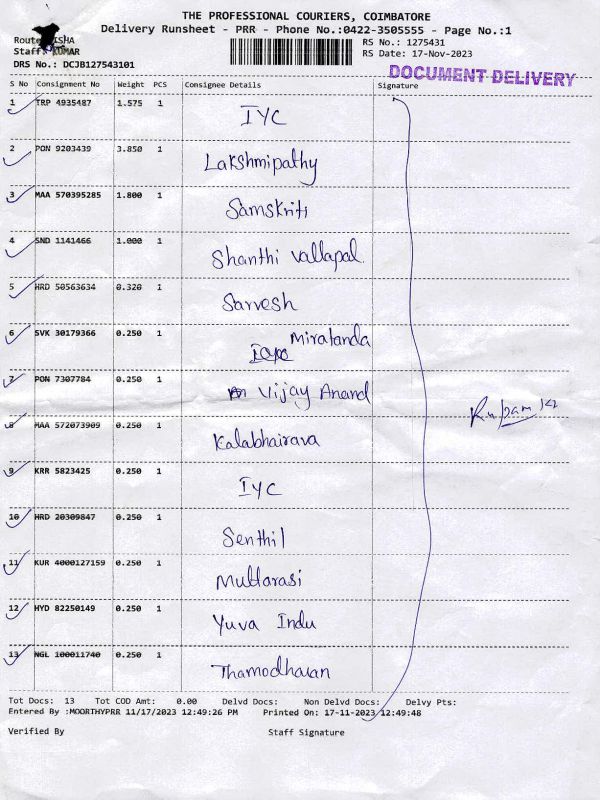 THE PROFESSIONAL COURIERS, COIMBATORE
Delivery Runsheet - PRR - Phone No.:0422-3505555 - Page No.:1
Route: ISHA
Staff: KUMAR
RS No.: 1275431
RS Date: 17-Nov-2023
DRS No.: DCJB127543101
DOCUMENT DELIVERY
S No Consignment No Weight PCS Consignee Details Signature
1 TRP 4935487 1.575 1 IYC
2 PON 9203439 3.850 1 Lakshmipathy
3 MAA 570395285 1.800 1 Samskriti
4 SND 1141466 1.000 1 Shanthi Vallapal.
5 HRD 50563634 0.320 1 Sarvesh
6 SVK 30179366 0.250 1 Miratanda
7 PON 7307784 0.250 1 Vijay Anand
8 MAA 572073909 0.250 1 Kalabhairava
9 KRR 5823425 0.250 1 IYC
10 HRD 20309847 0.250 1 Senthil
11 KUR 4000127159 0.250 1 Muttarasi
12 HYD 82250149 0.250 1 Yuva Indu
13 NGL 100011740 0.250 1 Thamodharan
Tot Docs: 13 Tot COD Amt: 0.00 Delvd Docs: Non Delvd Docs: Delvy Pts:
Entered By :MOORTHYPRR 11/17/2023 12:49:26 PM Printed On: 17-11-2023 12:49:48
Verified By Staff Signature